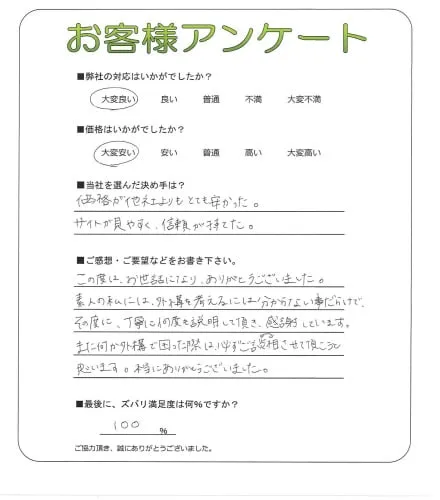 お客様アンケート
■弊社の対応はいかがでしたか？
大変良い 良い 普通 不満 大変不満
■価格はいかがでしたか？
大変安い 安い 普通 高い 大変高い
■当社を選んだ決め手は？
価格が他社よりもとても安かった。
サイトが見やすく、信頼が持てた。
■ご感想・ご要望などをお書き下さい。
この度は、お世話になり、ありがとうございました。
素人の私には、外構を考えるには分からない事だらけで、
その度に、丁寧に何度も説明して頂き、感謝しています。
また何か外構で困った際は、必ずご談相させて頂こうと
思います。本当にありがとうございました。
■最後に、ズバリ満足度は何％ですか？
100 ％
ご協力頂き、誠にありがとうございました。